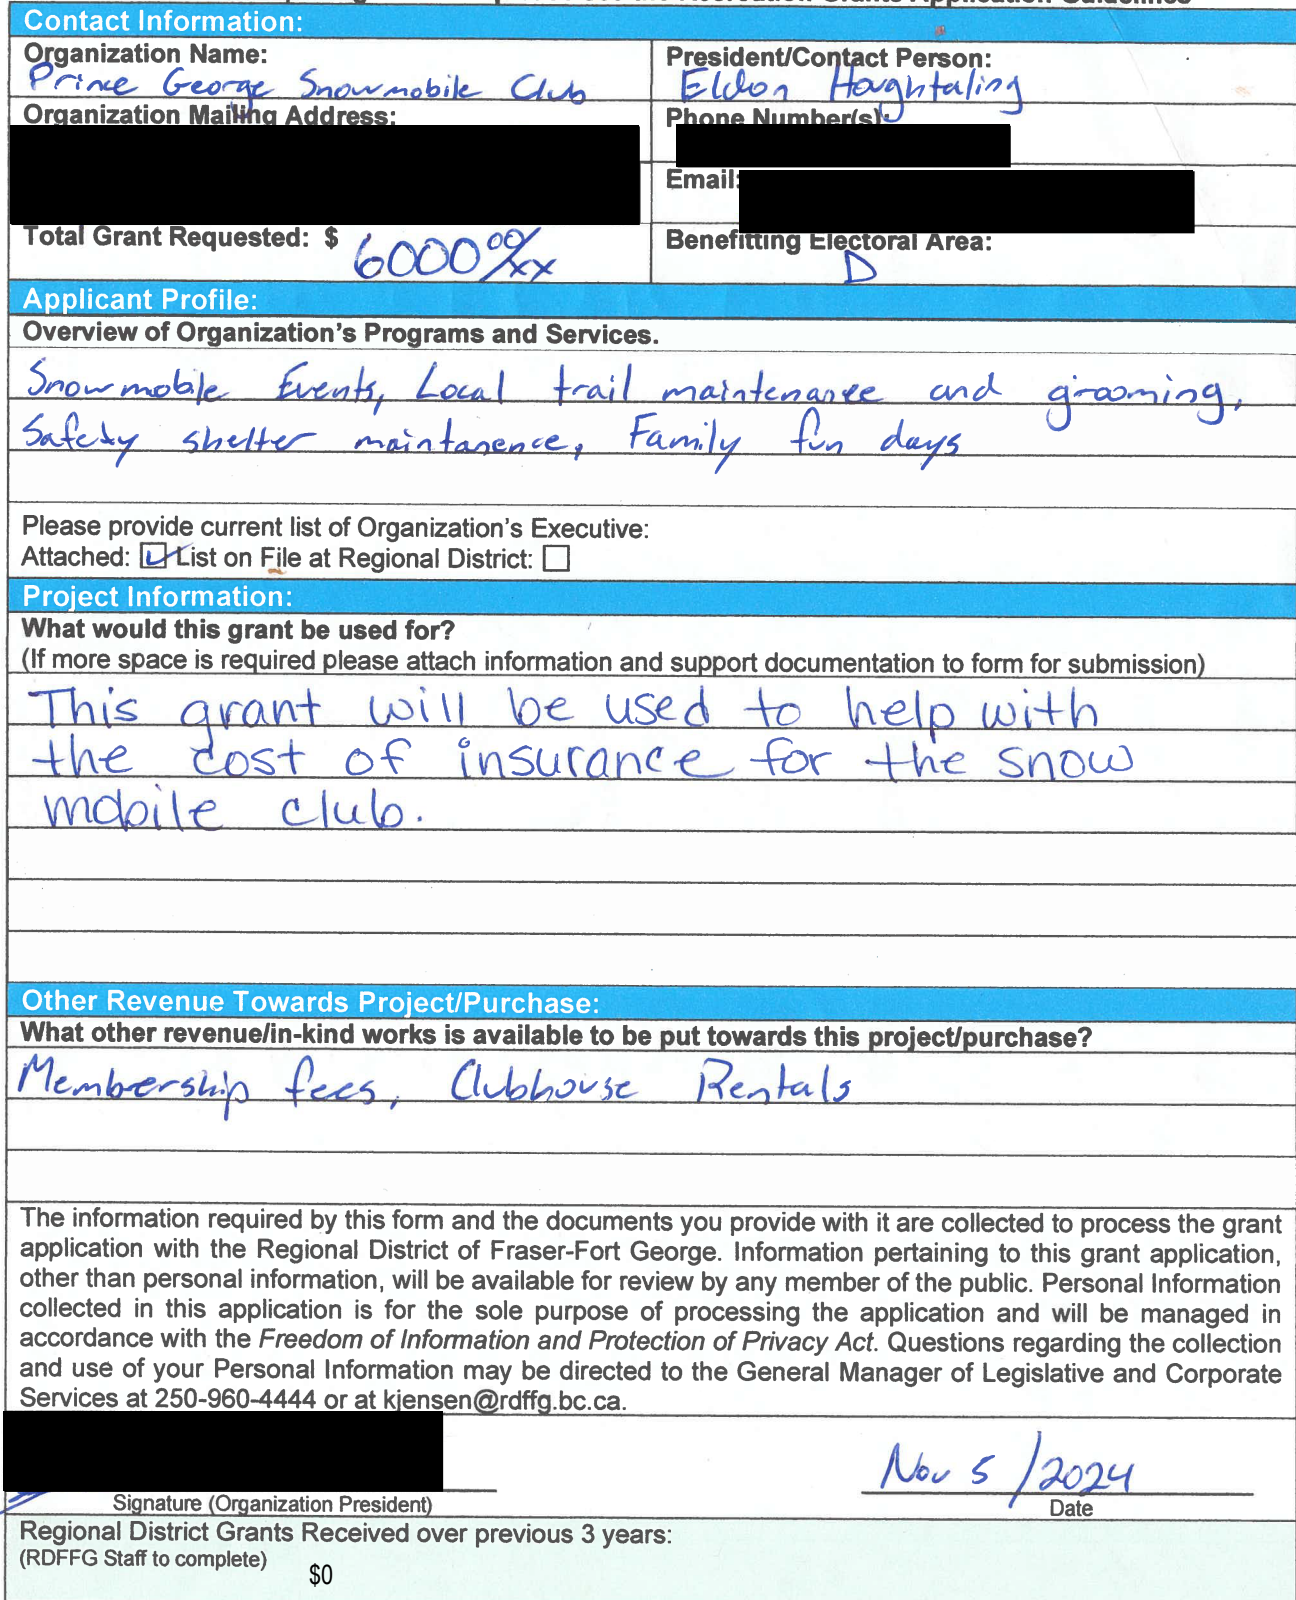 Contact Information:
Organization Name:
Prince George Snowmobile Club
President/Contact Person:
Eldon Houghtaling
Organization Mailing Address:
Phone Number(s):
Email:
Total Grant Requested: $ 6000 00/xx
Benefitting Electoral Area:
D
Applicant Profile:
Overview of Organization's Programs and Services.
Snowmobile Events, Local trail maintenance and grooming,
Safety shelter maintanence, Family fun days
Please provide current list of Organization's Executive:
Attached: ☑ List on File at Regional District: ☐
Project Information:
What would this grant be used for?
(If more space is required please attach information and support documentation to form for submission)
This grant will be used to help with
the cost of insurance for the snow
mobile club.
Other Revenue Towards Project/Purchase:
What other revenue/in-kind works is available to be put towards this project/purchase?
Membership fees, Clubhouse Rentals
The information required by this form and the documents you provide with it are collected to process the grant
application with the Regional District of Fraser-Fort George. Information pertaining to this grant application,
other than personal information, will be available for review by any member of the public. Personal Information
collected in this application is for the sole purpose of processing the application and will be managed in
accordance with the Freedom of Information and Protection of Privacy Act. Questions regarding the collection
and use of your Personal Information may be directed to the General Manager of Legislative and Corporate
Services at 250-960-4444 or at kjensen@rdffg.bc.ca.
Nov 5/2024
Signature (Organization President)
Date
Regional District Grants Received over previous 3 years:
(RDFFG Staff to complete)
$0